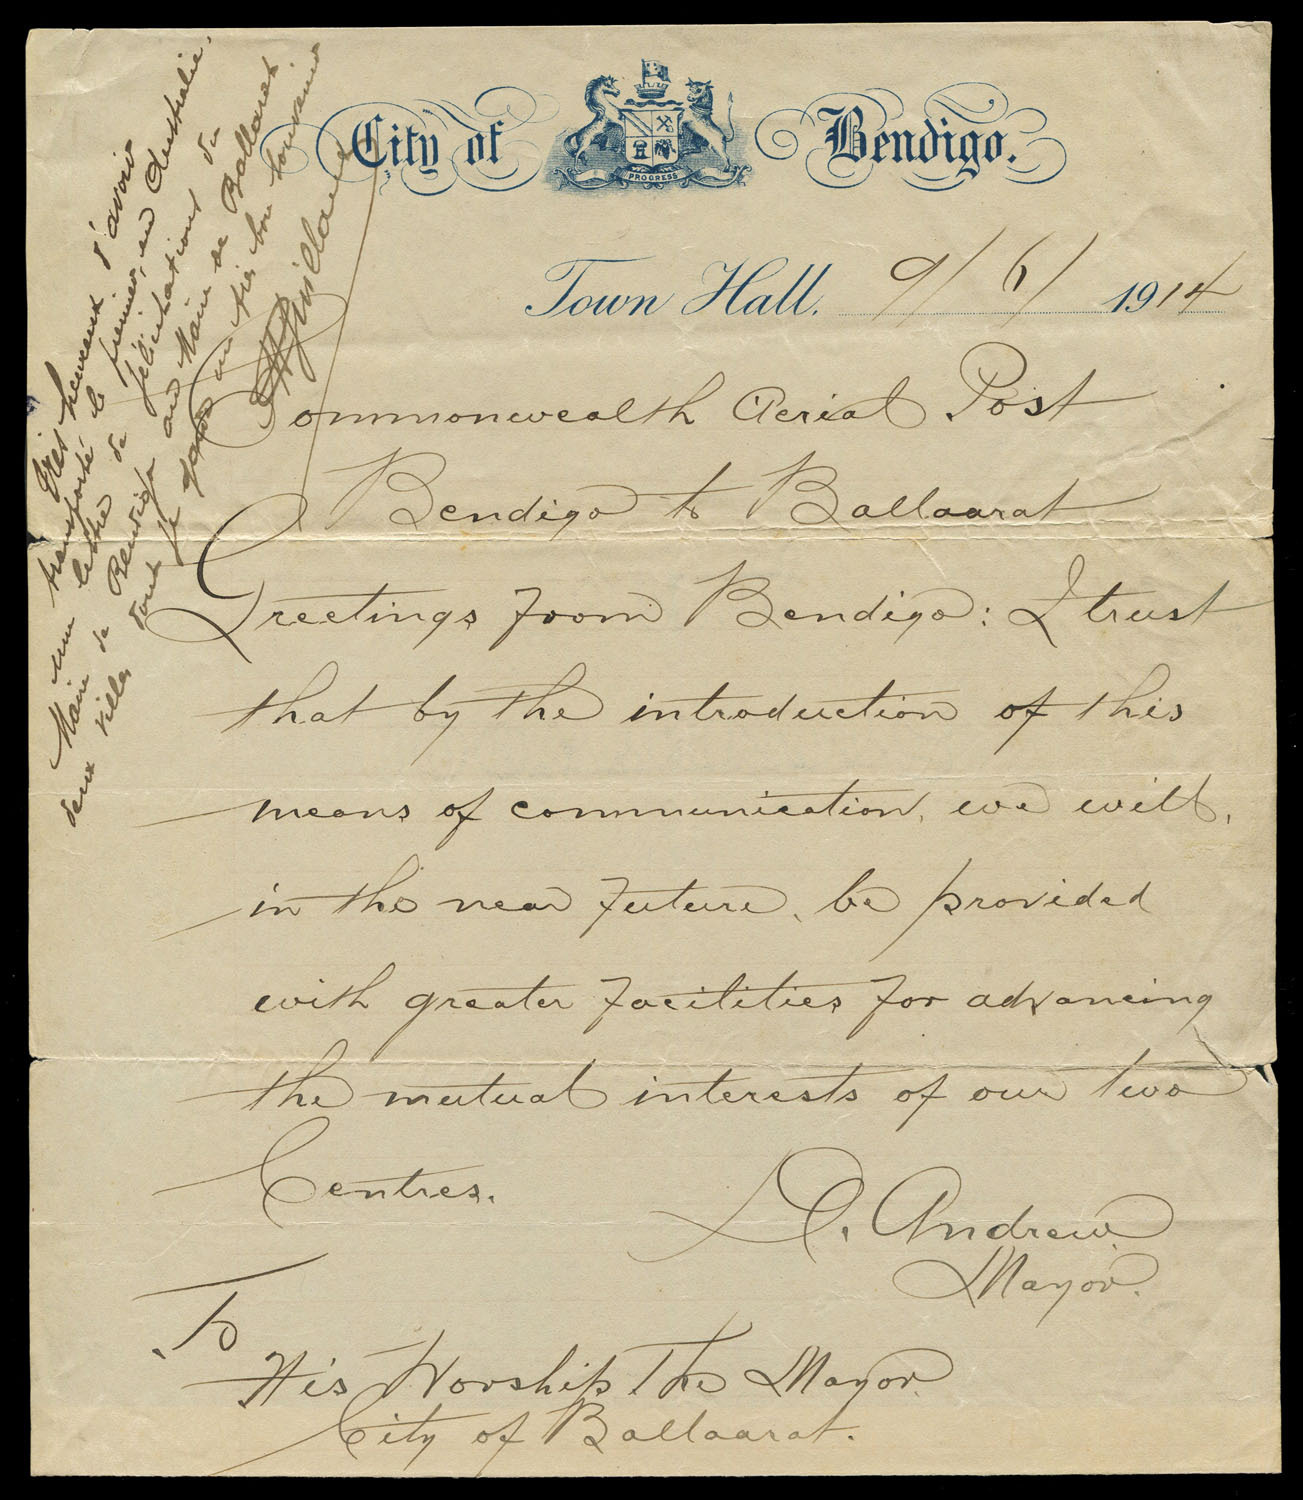 City of Bendigo.
PROGRESS
Town Hall. 9/6/ 1914
Commonwealth Aerial Post
Bendigo to Ballaarat
Greetings from Bendigo: I trust
that by the introduction of this
means of communication, we will,
in the near future, be provided
with greater facilities for advancing
the mutual interests of our two
Centres.
D. Andrew
Mayor.
To
His Worship The Mayor
City of Ballaarat.
Très heureux d'avoir
transporté le premier, en Australie,
une lettre de félicitations du
Maire de Bendigo au Maire de Ballarat
deux villes dont je garde un très bon souvenir
Guillaux